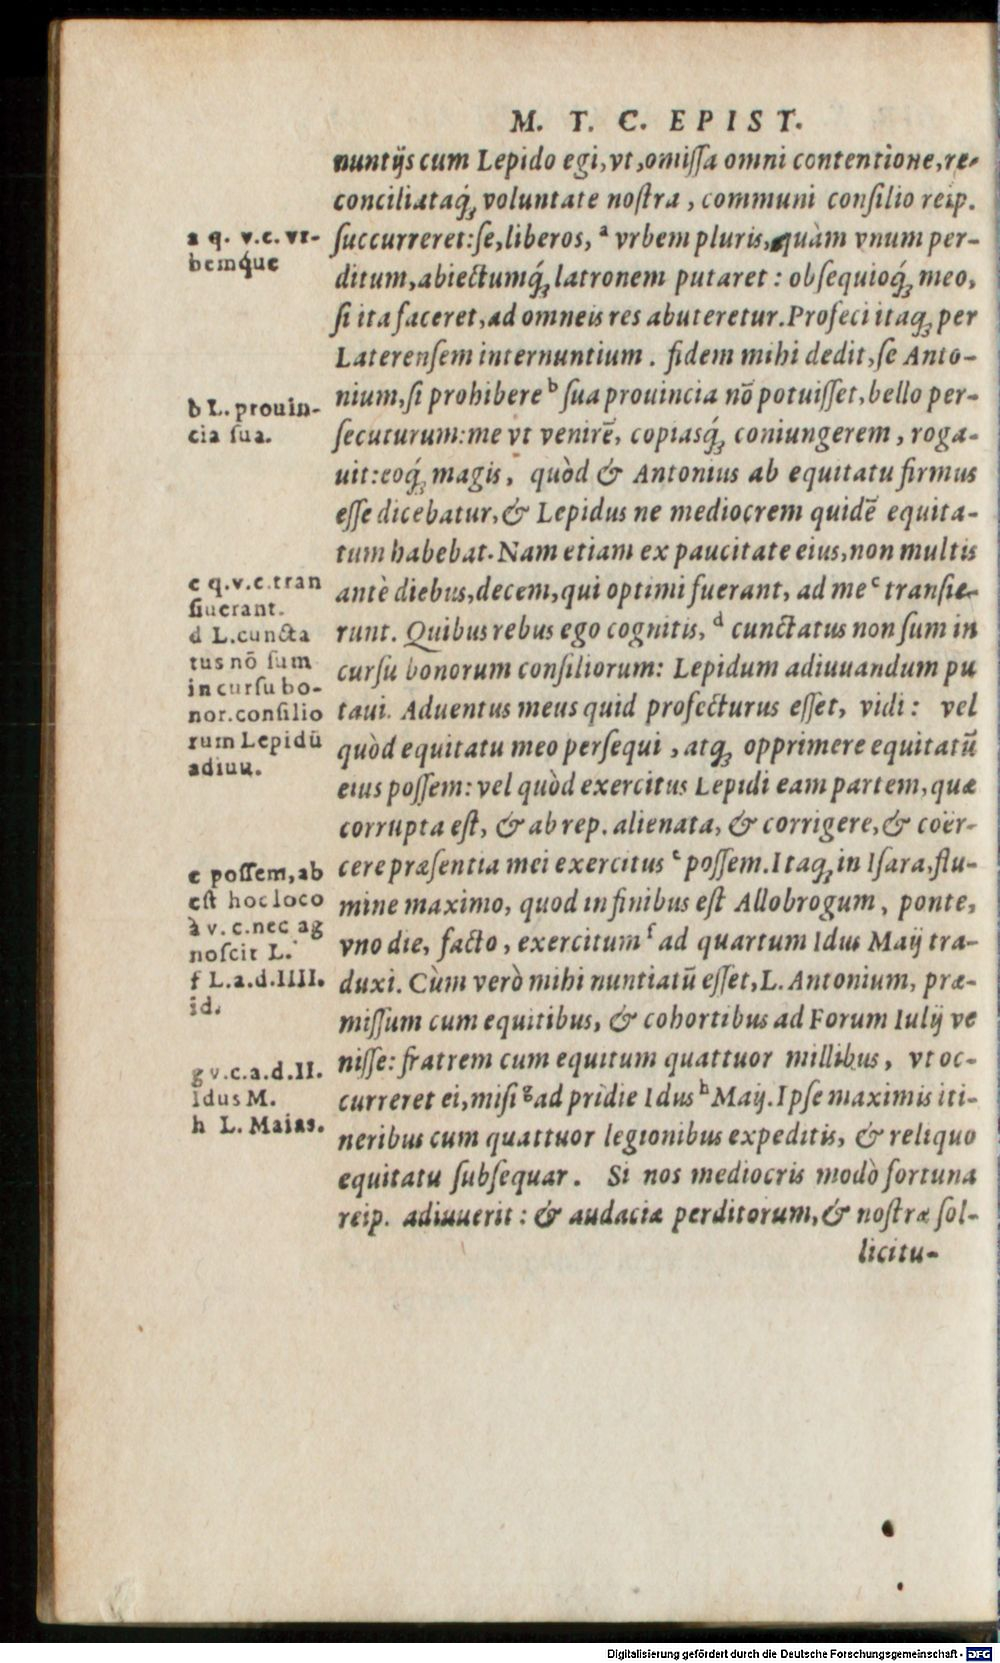 M. T. C. EPIST.
nuntijs cum Lepido egi, vt, omiſſa omni contentione, re-
conciliataq́ꝫ voluntate noſtra, communi conſilio reip.
ſuccurreret: ſe, liberos, ᵃ vrbem pluris, quàm vnum per-
ditum, abiectumq́ꝫ latronem putaret: obſequioq́ꝫ meo,
ſi ita faceret, ad omneis res abuteretur. Profeci itaqꝫ per
Laterenſem internuntium. fidem mihi dedit, ſe Anto-
nium, ſi prohibere ᵇ ſua prouincia nō potuiſſet, bello per-
ſecuturum: me vt venirē, copiasq́ꝫ coniungerem, roga-
uit: eoq́ꝫ magis, quòd & Antonius ab equitatu firmus
eſſe dicebatur, & Lepidus ne mediocrem quidē equita-
tum habebat. Nam etiam ex paucitate eius, non multis
antè diebus, decem, qui optimi fuerant, ad me ᶜ tranſie-
runt. Quibus rebus ego cognitis, ᵈ cunctatus non ſum in
curſu bonorum conſiliorum: Lepidum adiuuandum pu
taui. Aduentus meus quid profecturus eſſet, vidi: vel
quòd equitatu meo perſequi, atqꝫ opprimere equitatū
eius poſſem: vel quòd exercitus Lepidi eam partem, quæ
corrupta eſt, & ab rep. alienata, & corrigere, & coër-
cere præſentia mei exercitus ᵉ poſſem. Itaqꝫ in Iſara, flu-
mine maximo, quod in finibus eſt Allobrogum, ponte,
vno die, facto, exercitum ᶠ ad quartum Idus Maij tra-
duxi. Cùm verò mihi nuntiatū eſſet, L. Antonium, præ-
miſſum cum equitibus, & cohortibus ad Forum Iulij ve
niſſe: fratrem cum equitum quattuor millibus, vt oc-
curreret ei, miſi ᵍ ad pridie Idus ʰ Maij. Ipſe maximis iti-
neribus cum quattuor legionibus expeditis, & reliquo
equitatu ſubſequar. Si nos mediocris modò fortuna
reip. adiuuerit: & audaciæ perditorum, & noſtræ ſol-
licitu-
a q. v.c. vr-
bemq́ue
b L. prouin-
cia ſua.
c q.v.c.tran
ſiuerant.
d L.cuncta
tus nō ſum
in curſu bo-
nor.conſilio
rum Lepidū
adiuu.
e poſſem, ab
eſt hoc loco
à v. c.nec ag
noſcit L.
f L.a.d.IIII.
id.
g v.c.a.d.II.
Idus M.
h L. Maias.
Digitalisierung gefördert durch die Deutsche Forschungsgemeinschaft - DFG